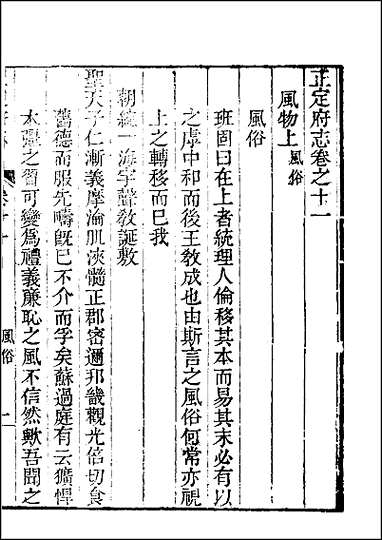 正定府志卷之十一
風物上 風俗
風俗
班固曰在上者統理人倫移其本而易其末必有以
之虖中和而後王敎成也由斯言之風俗何常亦視
上之轉移而已我
朝統一海宇聲敎誕敷
聖天子仁漸義摩淪肌浹髓正郡密邇邦畿觀光倍切食
舊德而服先疇旣已不介而孚矣蘇過庭有云獷悍
太張之習可變爲禮義廉恥之風不信然歟吾聞之
風俗